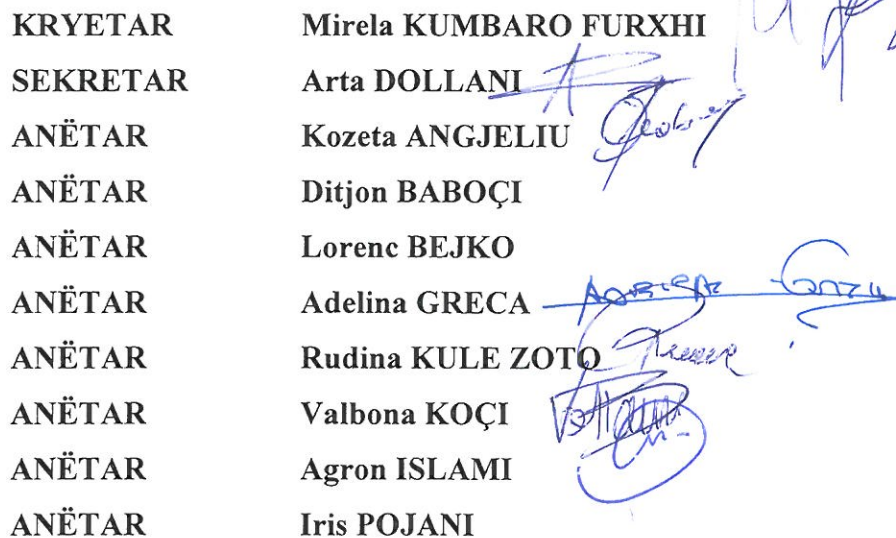 KRYETAR Mirela KUMBARO FURXHI
SEKRETAR Arta DOLLANI
ANËTAR Kozeta ANGJELIU
ANËTAR Ditjon BABOÇI
ANËTAR Lorenc BEJKO
ANËTAR Adelina GRECA
ANËTAR Rudina KULE ZOTO
ANËTAR Valbona KOÇI
ANËTAR Agron ISLAMI
ANËTAR Iris POJANI